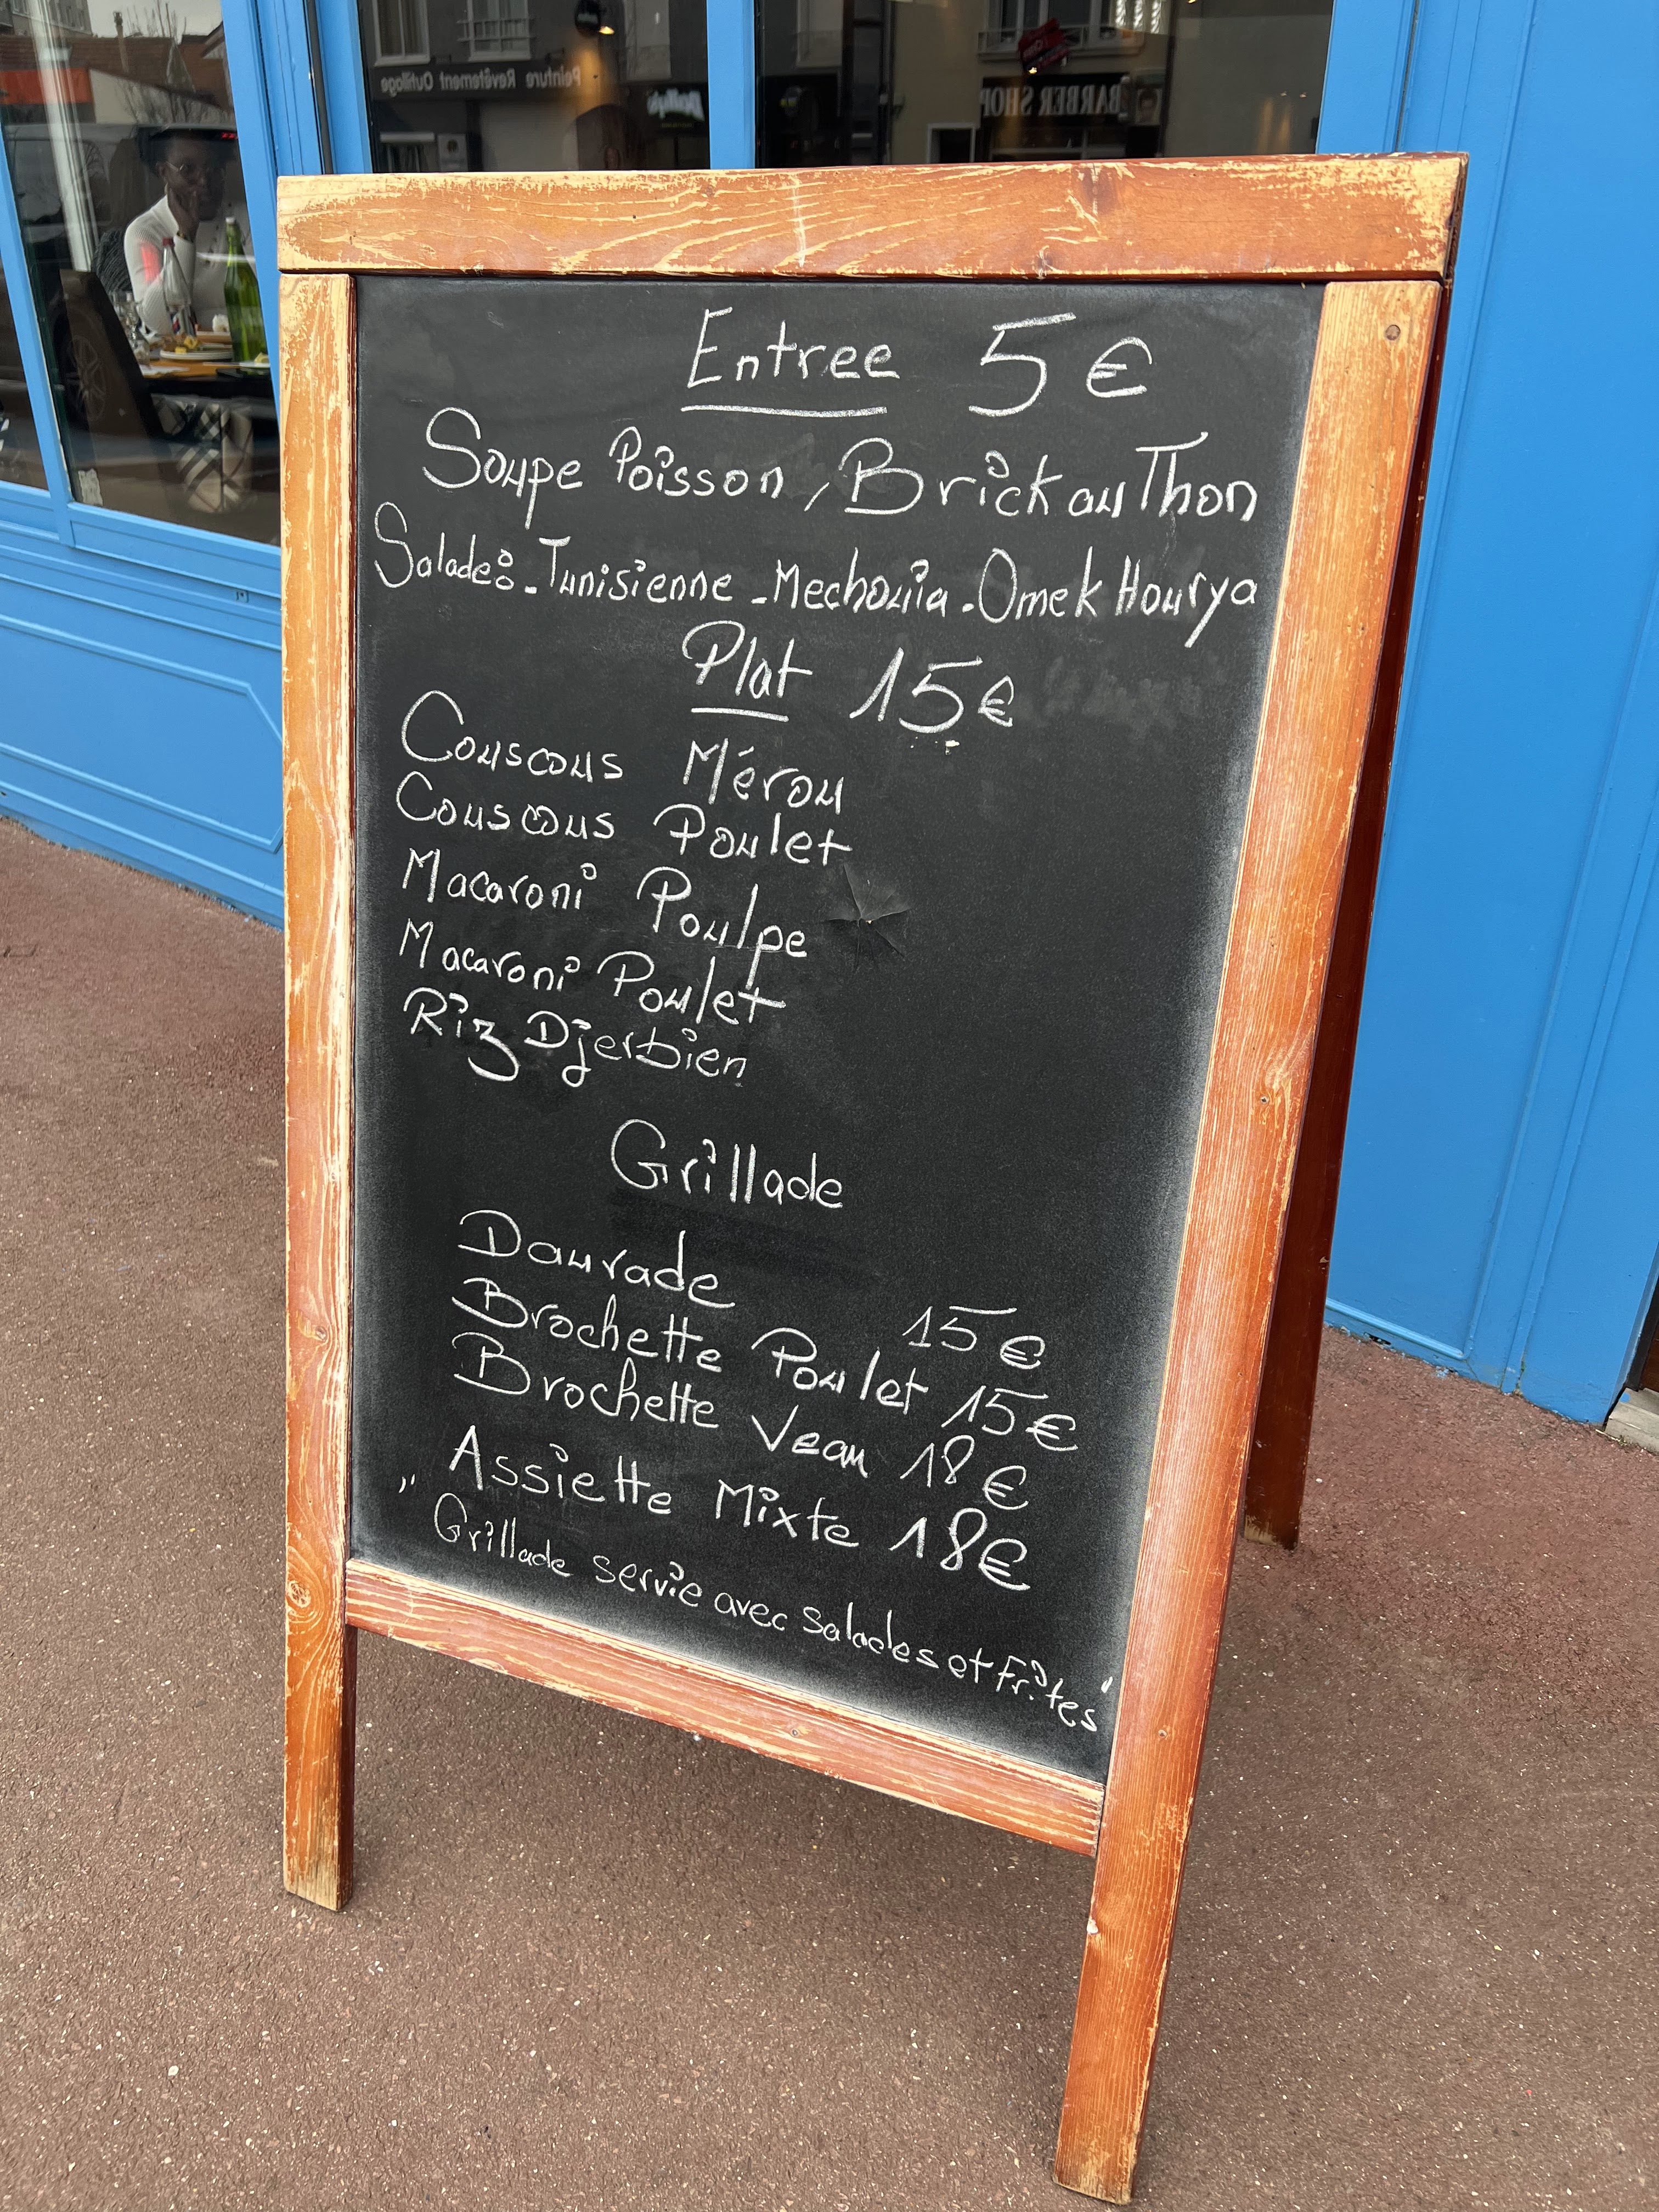 Peinture Revêtement Outillage
BARBER SHOP
Entree 5€
Soupe Poisson, Brick au Thon
Salade: -Tunisienne -Mechouia -Omek Hourya
Plat 15€
Couscous Mérou
Couscous Poulet
Macaroni Poulpe
Macaroni Poulet
Riz Djerbien
Grillade
Daurade 15€
Brochette Poulet 15€
Brochette Veau 18€
Assiette Mixte 18€
" Grillade servie avec salades et Frites "